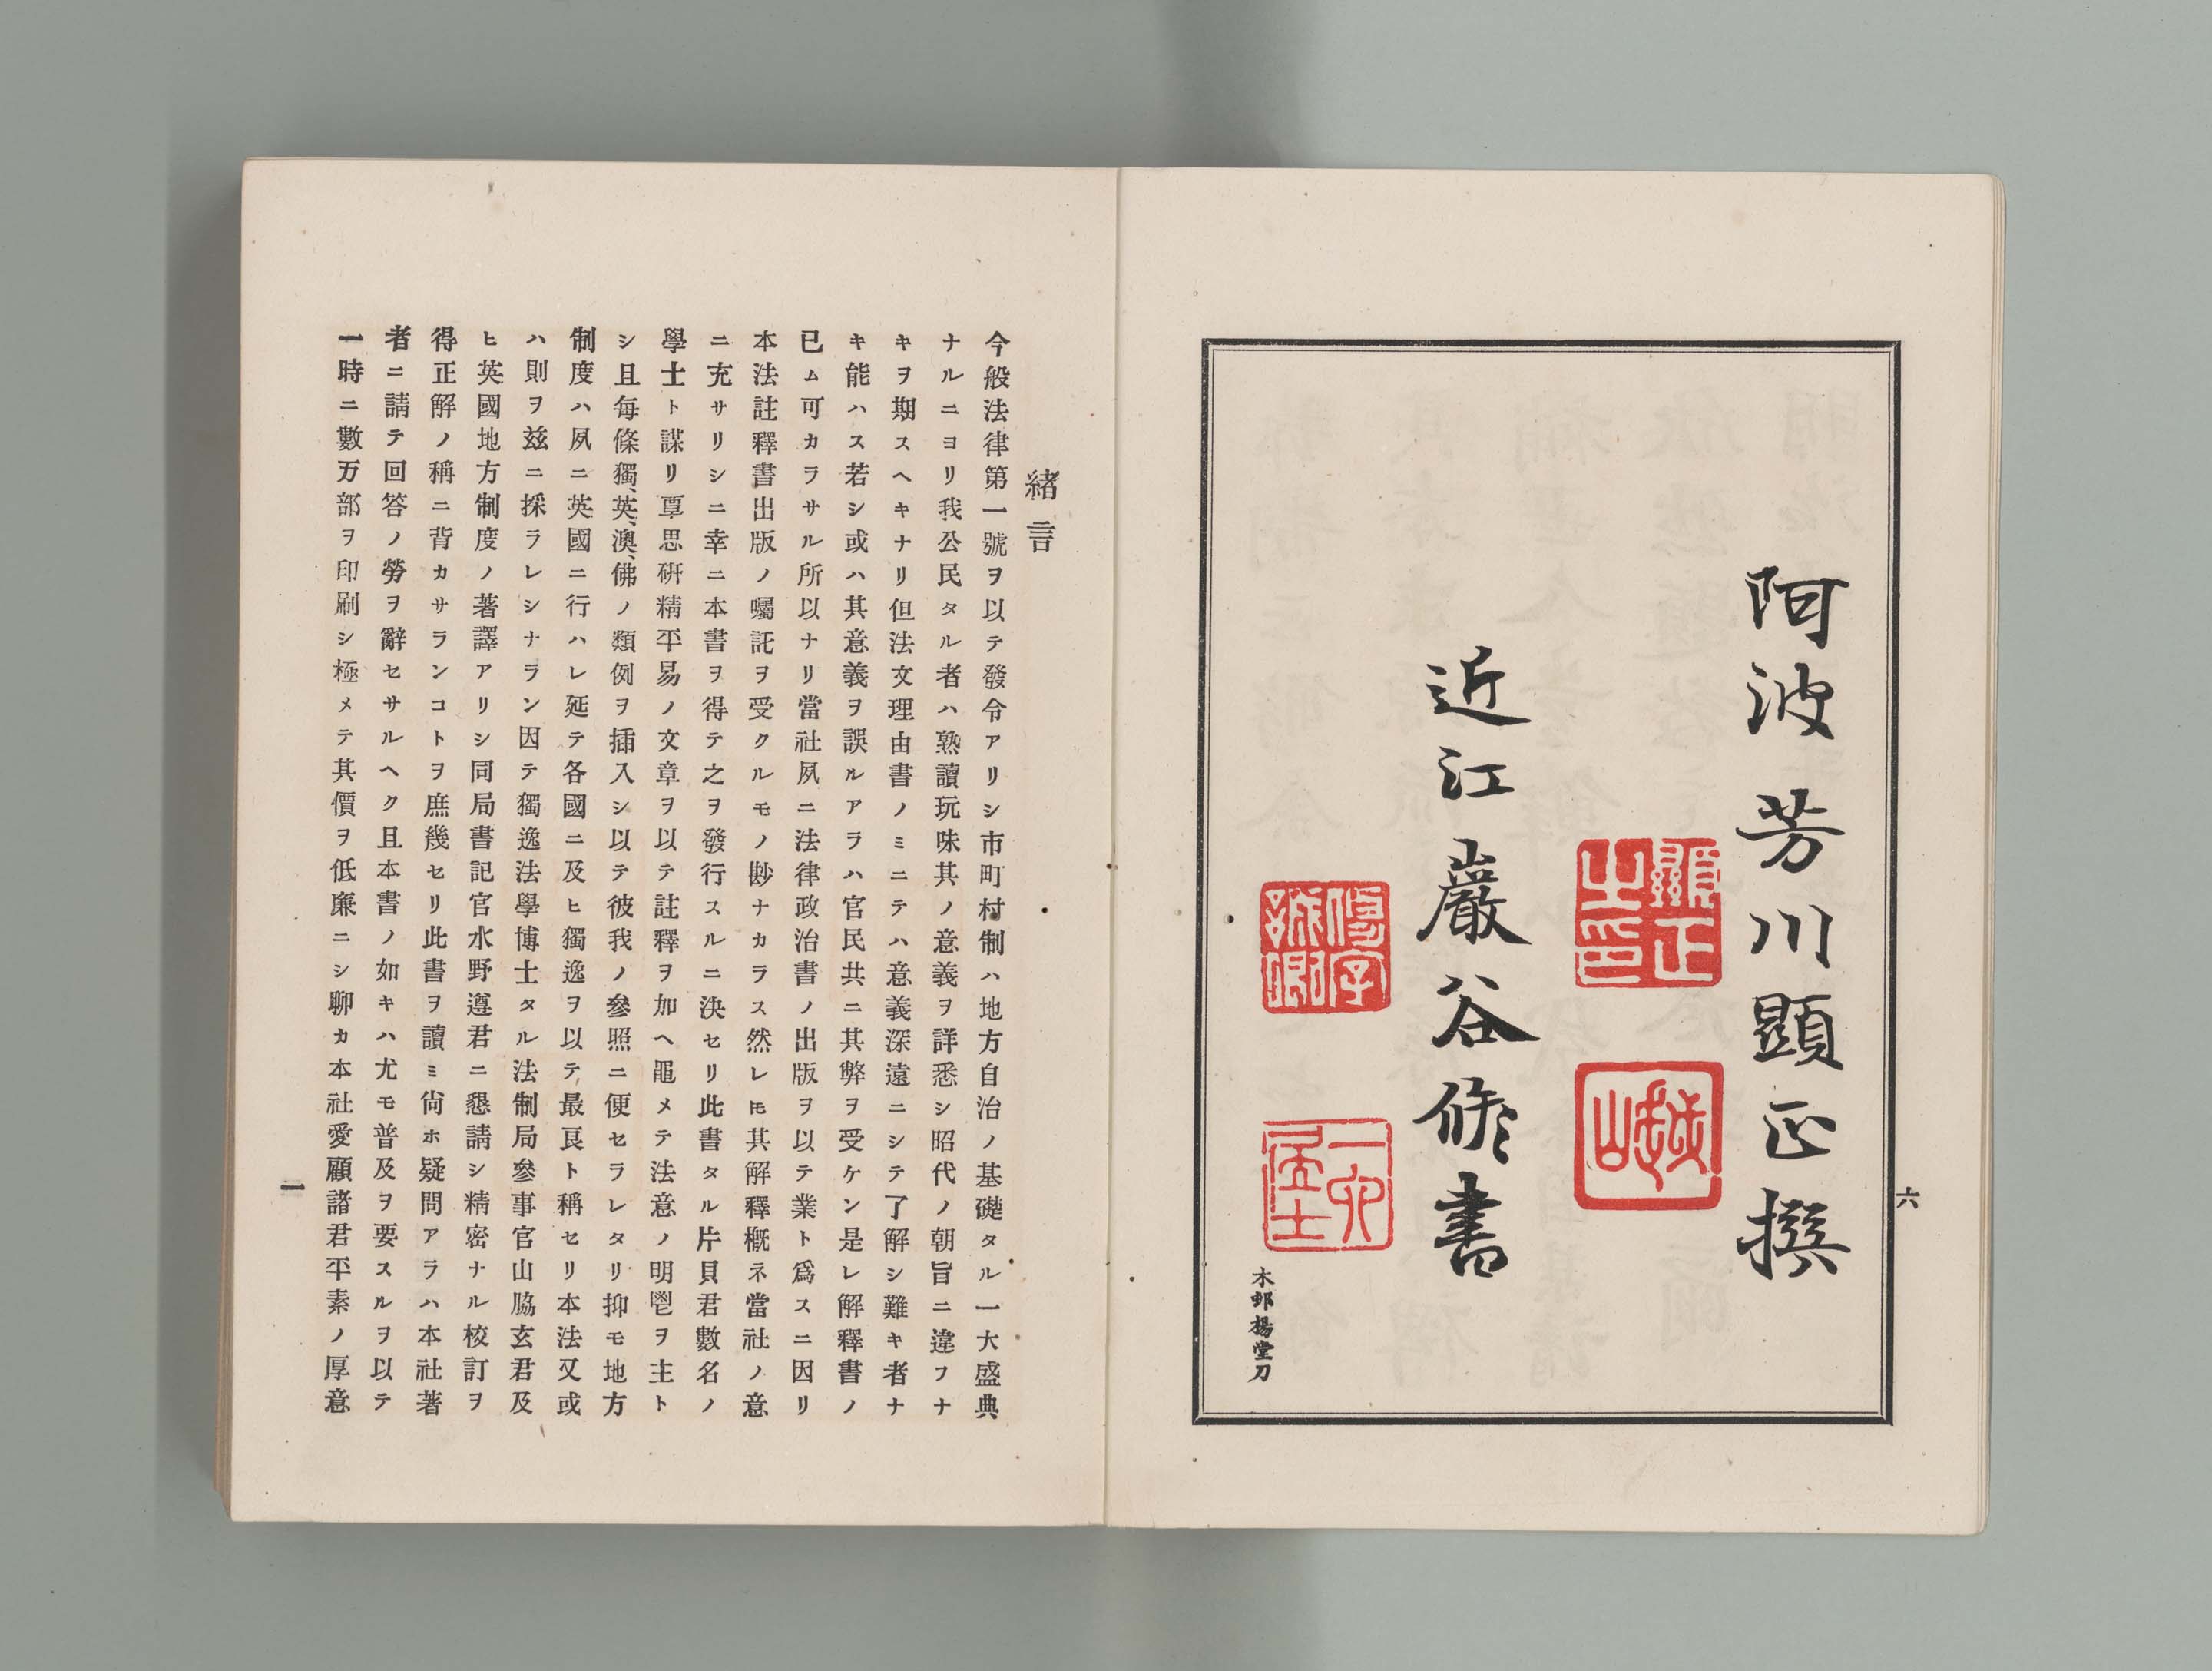 阿波芳川顯正撰
顯正之印
越山
近江巖谷修書
修字誠卿
一六居士
木邨楊堂刀
六
緒言
今般法律第一號ヲ以テ發令アリシ市町村制ハ地方自治ノ基礎タル一大盛典
ナルニヨリ我公民タル者ハ熟讀玩味其ノ意義ヲ詳悉シ昭代ノ朝旨ニ違フナ
キヲ期スヘキナリ但法文理由書ノミニテハ意義深遠ニシテ了解シ難キ者ナ
キ能ハス若シ或ハ其意義ヲ誤ルアラハ官民共ニ其弊ヲ受ケン是レ解釋書ノ
已ム可カラサル所以ナリ當社夙ニ法律政治書ノ出版ヲ以テ業ト爲スニ因リ
本法註釋書出版ノ囑託ヲ受クルモノ尠ナカラス然レ𪜈其解釋概ネ當社ノ意
ニ充サリシニ幸ニ本書ヲ得テ之ヲ發行スルニ決セリ此書タル片貝君數名ノ
學士ト謀リ覃思硏精平易ノ文章ヲ以テ註釋ヲ加ヘ黽メテ法意ノ明鬯ヲ主ト
シ且每條獨、英、澳、佛ノ類例ヲ揷入シ以テ彼我ノ參照ニ便セラレタリ抑モ地方
制度ハ夙ニ英國ニ行ハレ延テ各國ニ及ヒ獨逸ヲ以テ最良ト稱セリ本法又或
ハ則ヲ玆ニ採ラレシナラン因テ獨逸法學博士タル法制局參事官山脇玄君及
ヒ英國地方制度ノ著譯アリシ同局書記官水野遵君ニ懇請シ精密ナル校訂ヲ
得正解ノ稱ニ背カサランコトヲ庶幾セリ此書ヲ讀ミ尙ホ疑問アラハ本社著
者ニ請テ回答ノ勞ヲ辭セサルヘク且本書ノ如キハ尤モ普及ヲ要スルヲ以テ
一時ニ數万部ヲ印刷シ極メテ其價ヲ低廉ニシ聊カ本社愛顧諸君平素ノ厚意
一